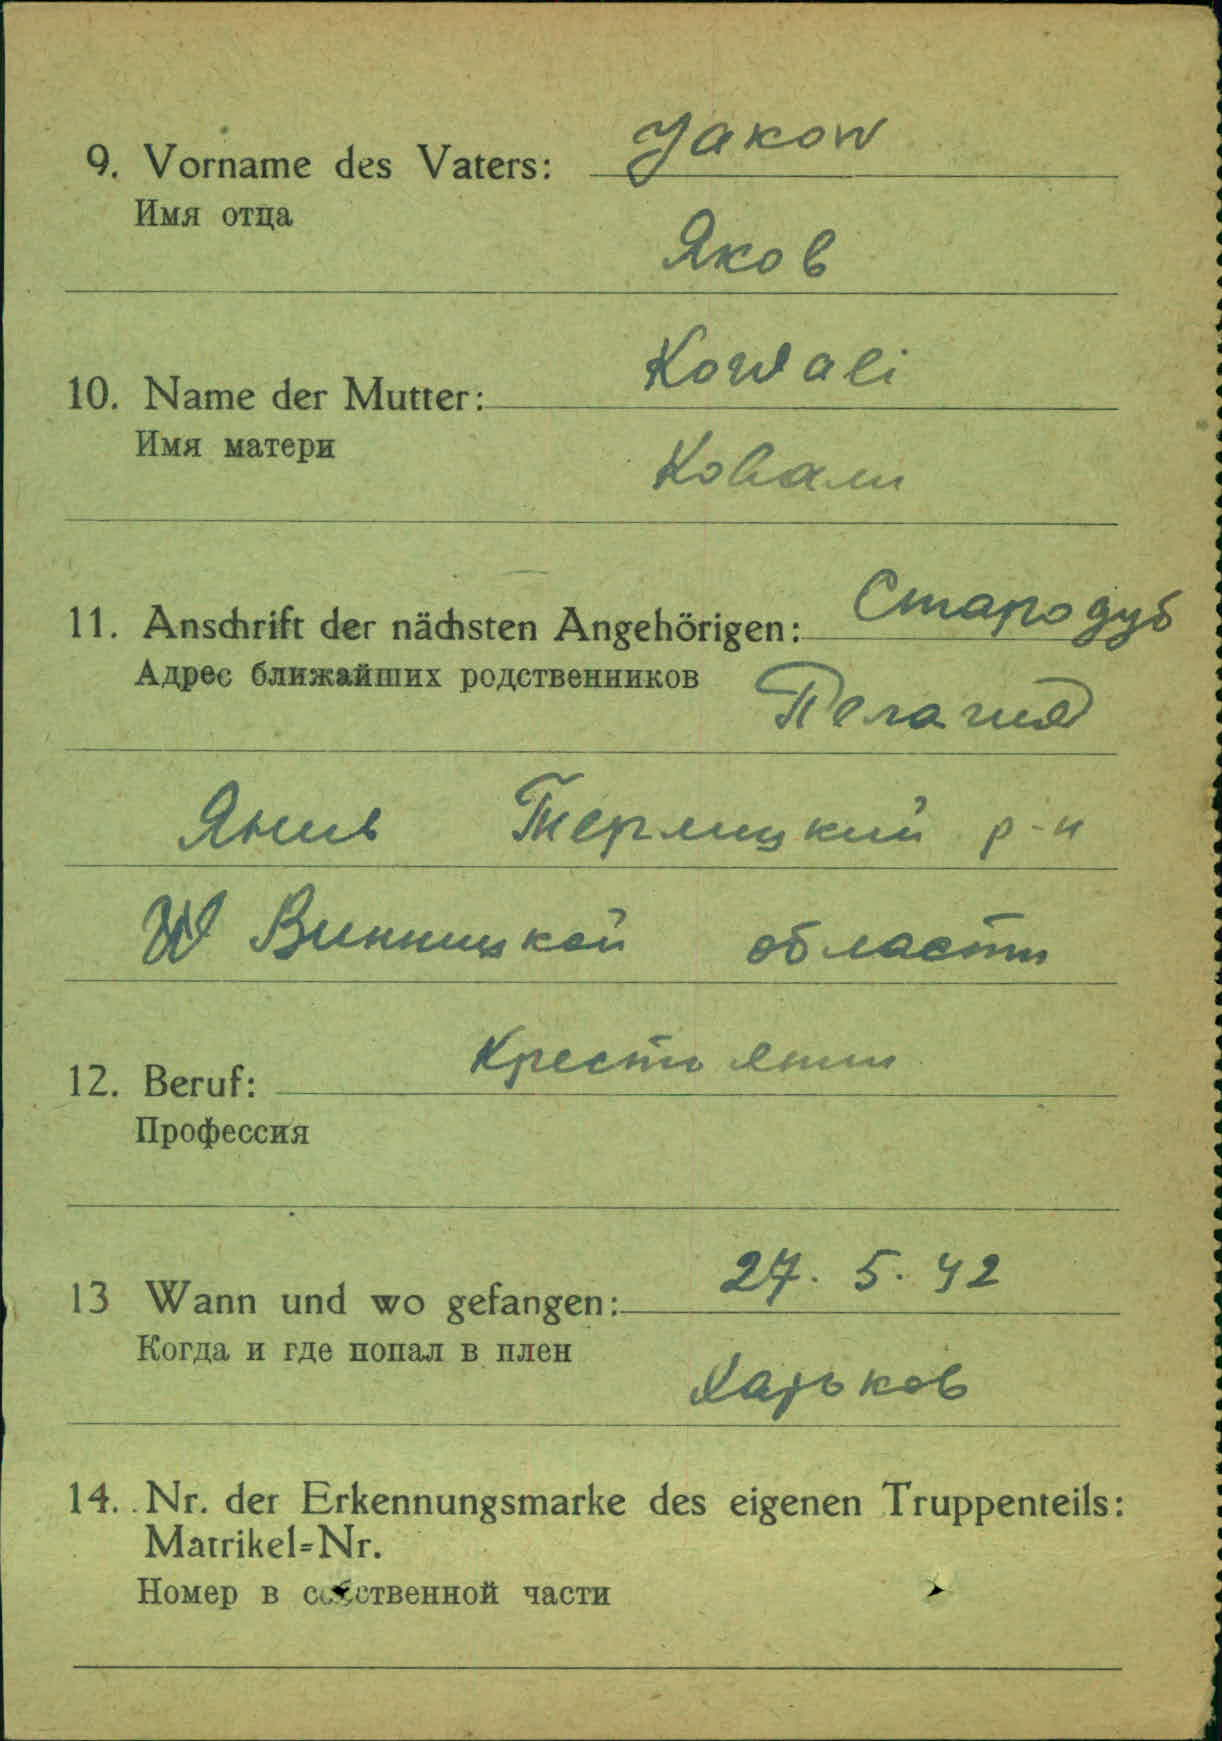 Jakow
9. Vorname des Vaters:
Имя отца
Яков
Kowali
10. Name der Mutter:
Имя матери
Ковали
11. Anschrift der nächsten Angehörigen: Стародуб
Адрес ближайших родственников
Пелагия
Янив Теплицкий р-н
W Винницкой области
Крестьянин
12. Beruf:
Профессия
27. 5. 42
13 Wann und wo gefangen:
Когда и где попал в плен
Харьков
14. Nr. der Erkennungsmarke des eigenen Truppenteils:
Matrikel=Nr.
Номер в собственной части